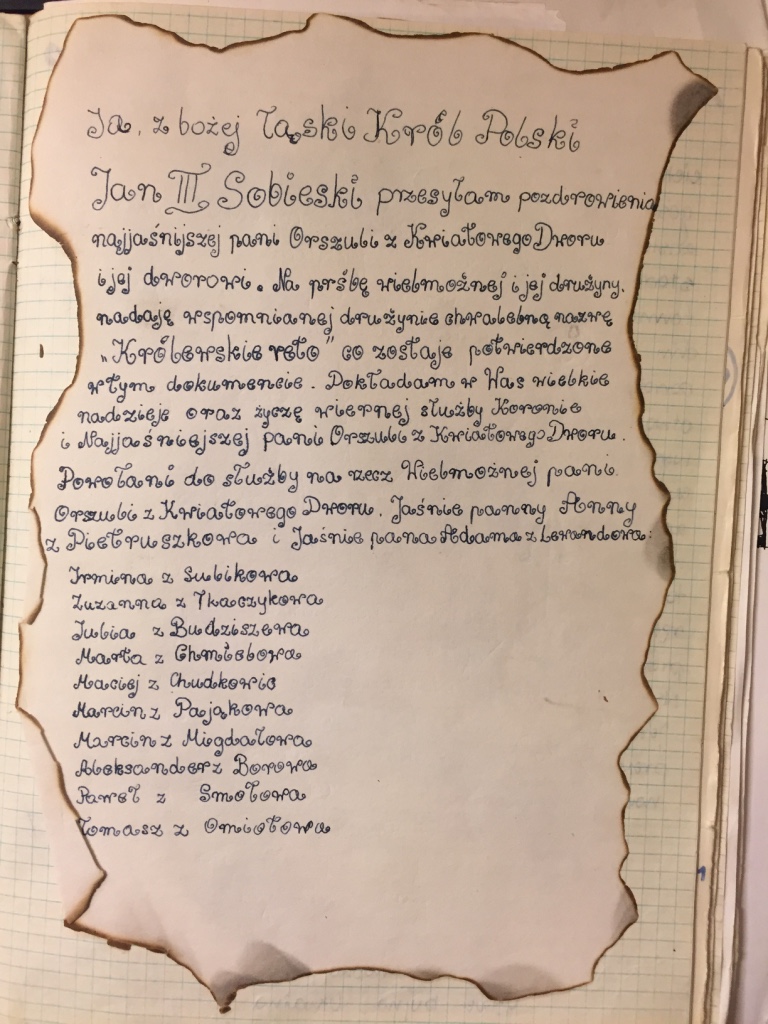 Ja, z bożej łaski Król Polski
Jan III Sobieski przesyłam pozdrowienia
najjaśnijszej pani Orszuli z Kwiatowego Dworu
i jej dworowi. Na prśbę wielmożnej i jej drużyny.
nadaję wspomnianej drużynie chwalebną nazwę
„Królewskie reto" co zostaje potwierdzone
w tym dokumencie. Pokładam w Was wielkie
nadzieje oraz życzę wiernej służby Koronie
i Najjaśniejszej pani Orszuli z Kwiatowego Dworu.
Powołani do służby na rzecz Wielmożnej pani
Orszuli z Kwiatowego Dworu. Jaśnie panny Anny
z Pietruszkowa i Jaśnie pana Adama z Lewandowa:
Irmina z Sulikowa
Zuzanna z Tkaczykowa
Julia z Budziszewa
Marta z Chmielowa
Maciej z Chudkowic
Marcin z Pająkowa
Marcin z Migdałowa
Aleksander z Borowa
Paweł z Smołowa
Tomasz z Omiotowa